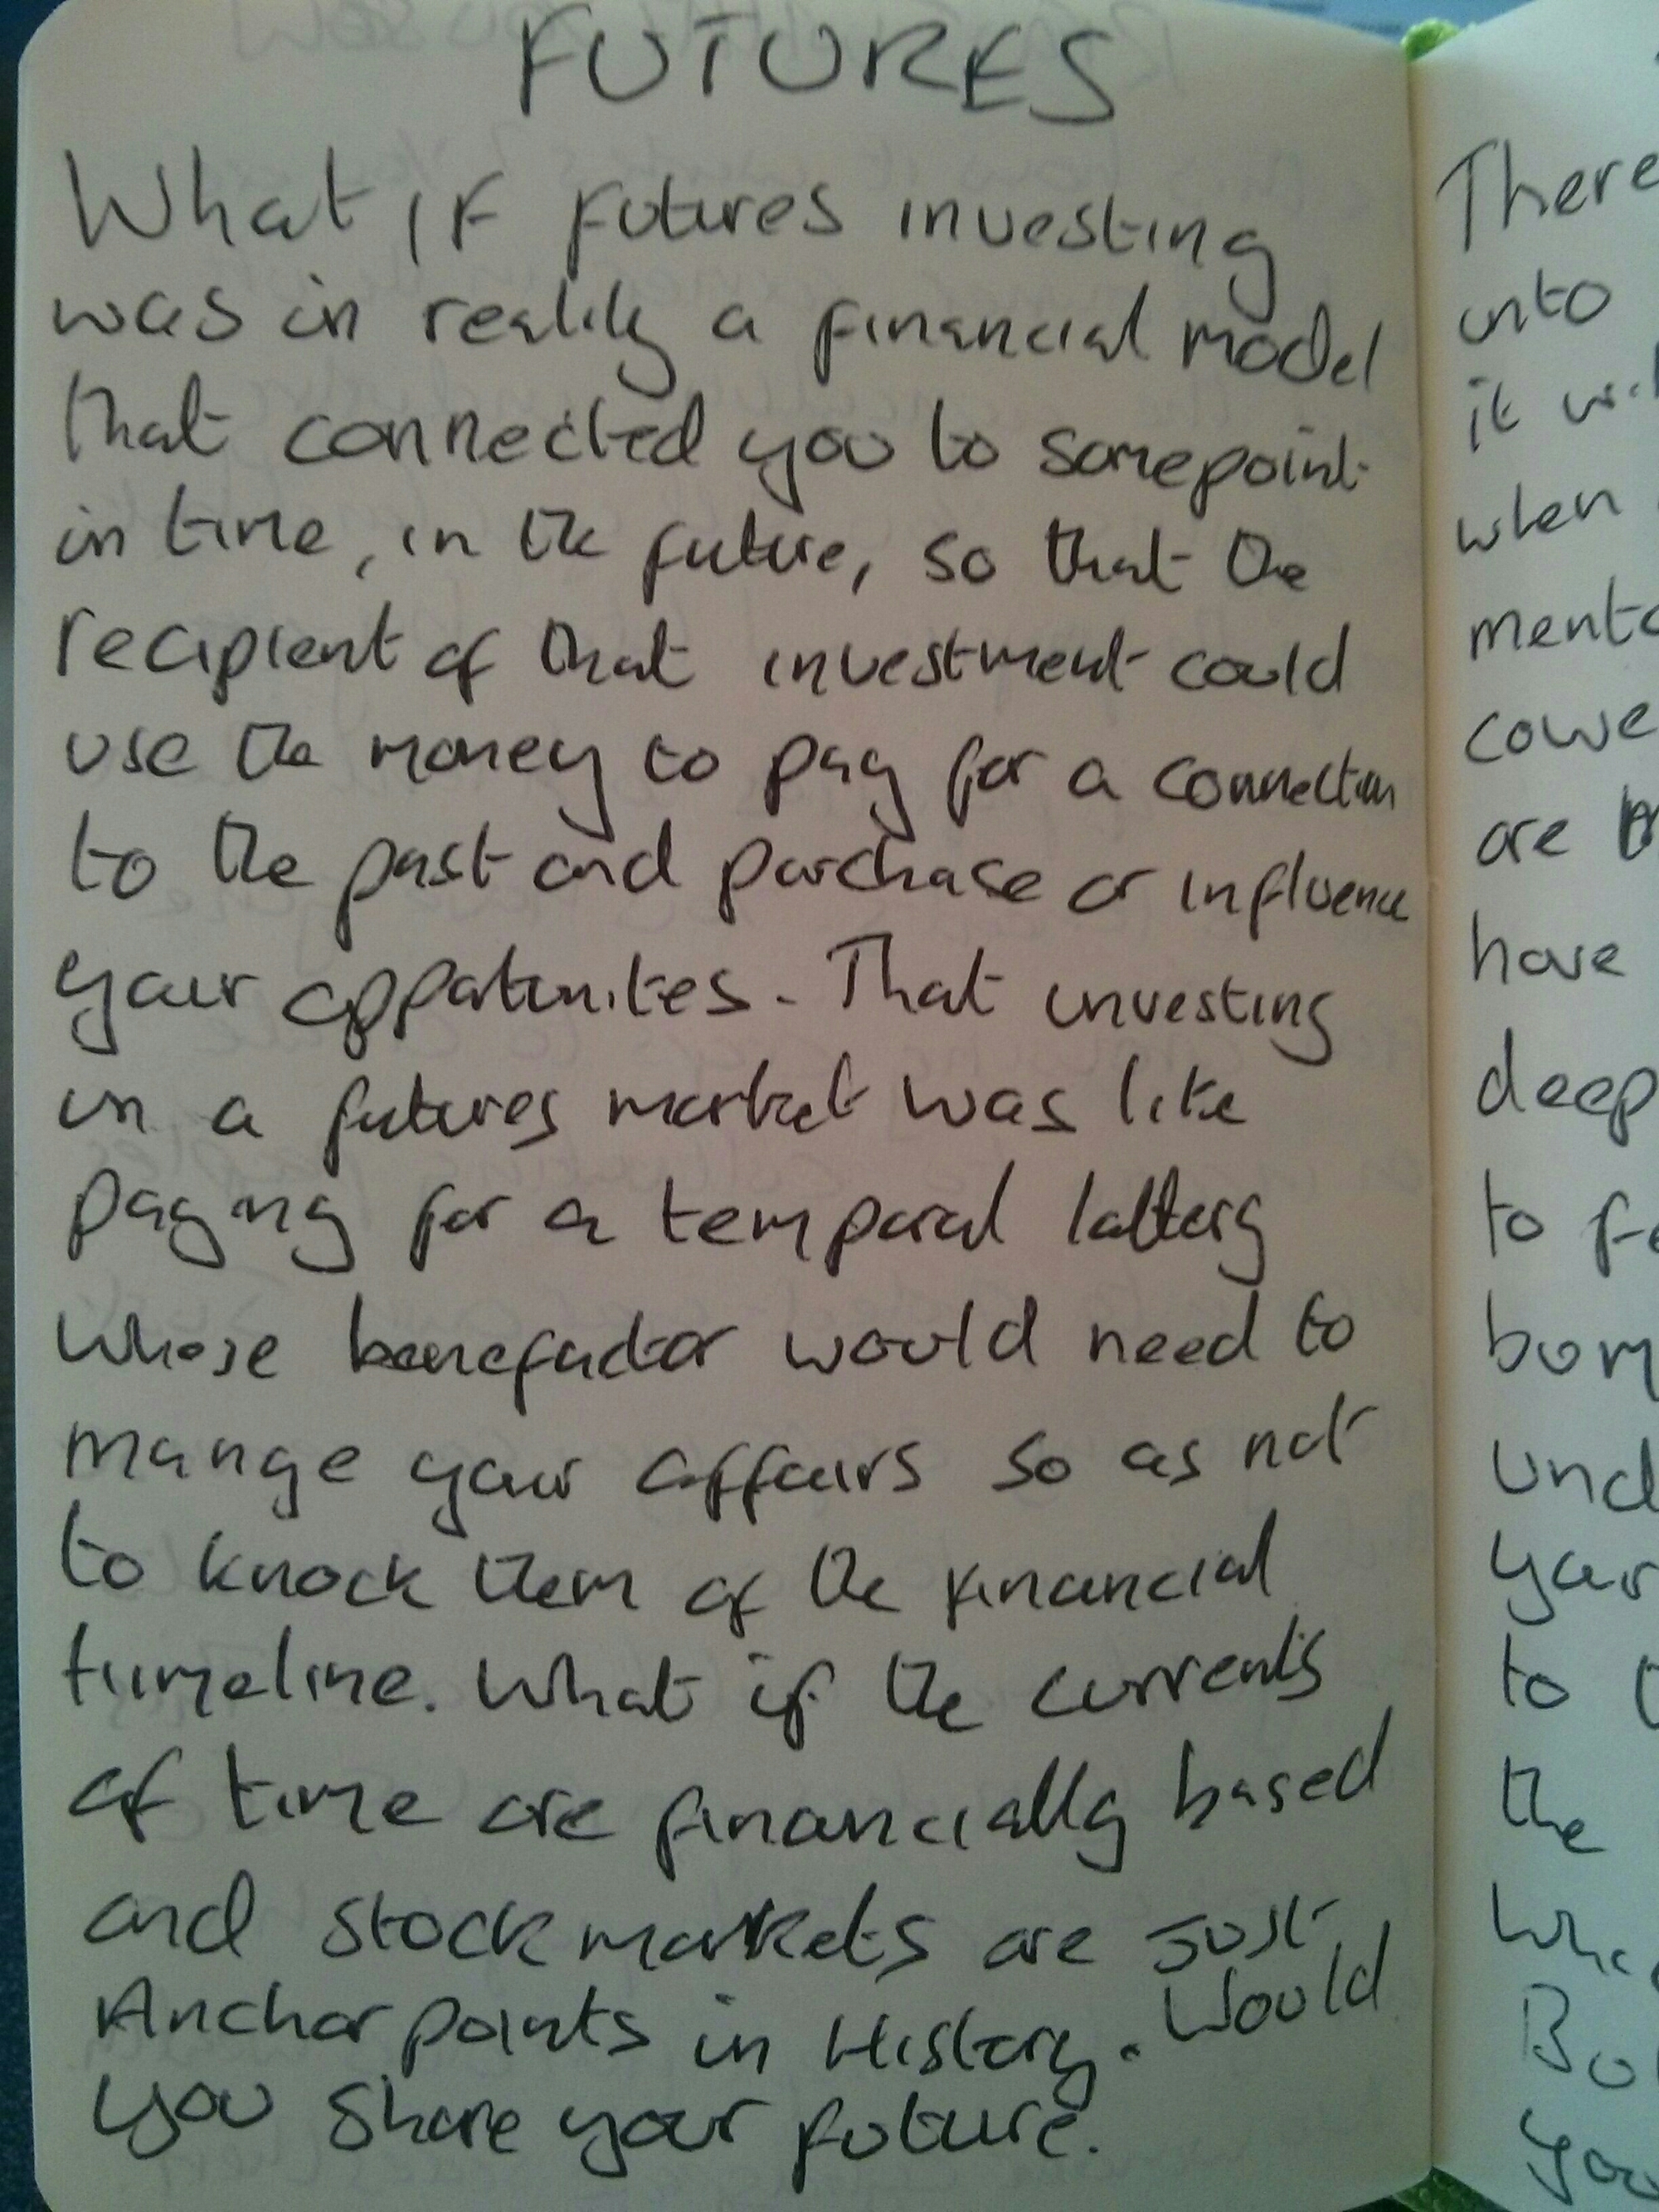 FUTURES
What if futures investing
was in reality a financial model
that connected you to somepoint
in time, in the future, so that the
recipient of that investment could
use the money to pay for a connection
to the past and purchase or influence
your oppatunites. That investing
in a futures market was like
paying for a temporal lottery
whose benefactor would need to
mange your affairs so as not
to knock them of the financial
timeline. What if the currents
of time are financially based
and stock markets are just
Anchor points in History. Would
you share your future.
There
into
it
when
are
have
deep
to
to
the